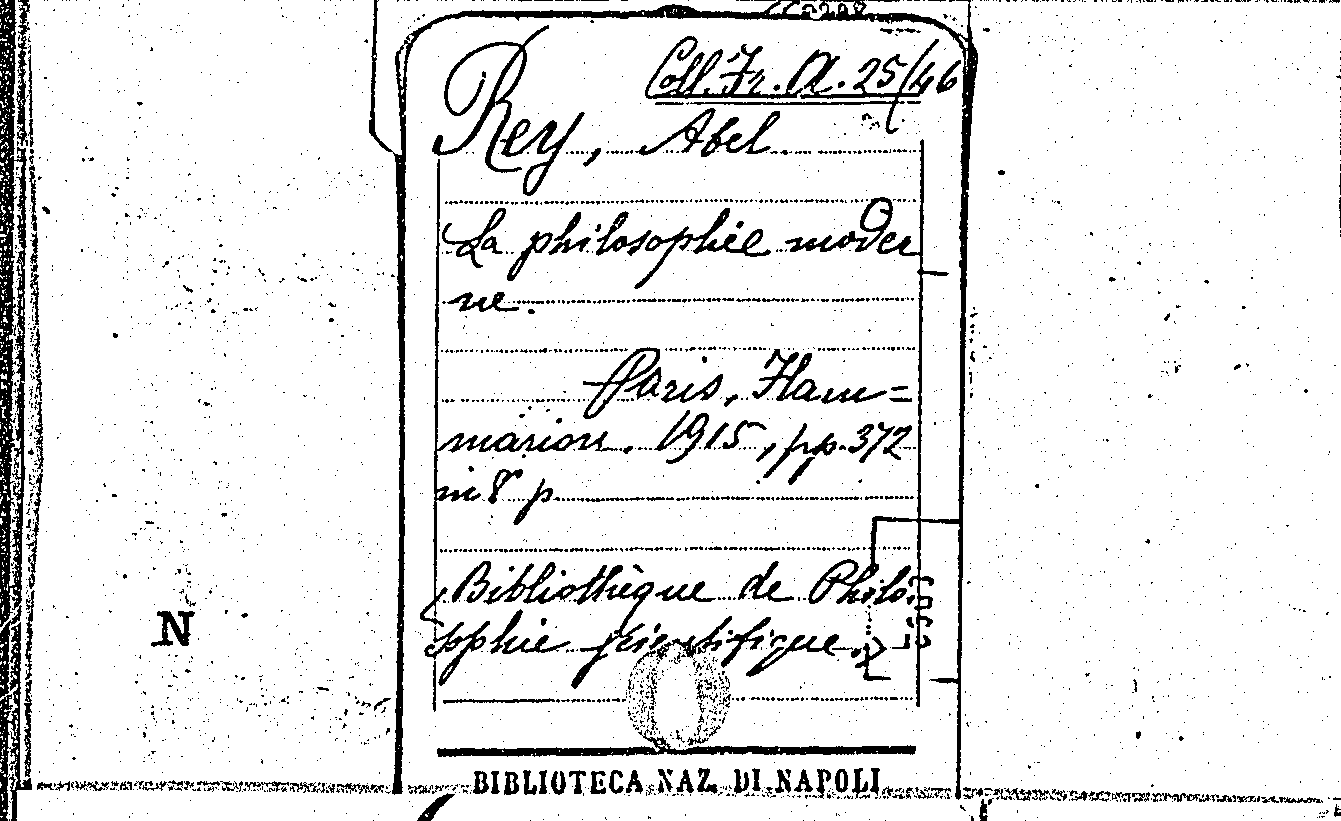 Coll. Fr. A. 25/46
Rey, Abel.
La philosophie moder
ne.
Paris, Flam=
marion. 1915, pp. 372
in 8° p.
(Bibliothèque de Philo
sophie scientifique.)
N
BIBLIOTECA NAZ. DI NAPOLI